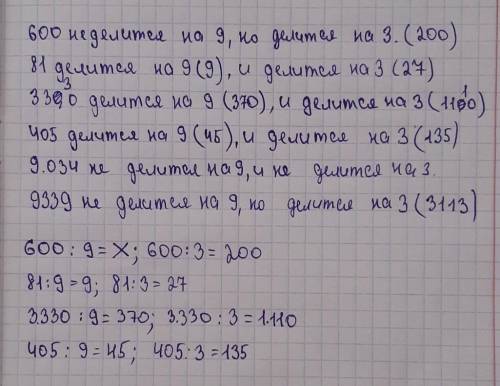 600 не делится на 9, но делится на 3. (200)
81 делится на 9 (9), и делится на 3 (27)
3330 делится на 9 (370), и делится на 3 (1110)
405 делится на 9 (45), и делится на 3 (135)
9.034 не делится на 9, и не делится на 3.
9339 не делится на 9, но делится на 3 (3113)
600 : 9 = X; 600 : 3 = 200
81 : 9 = 9; 81 : 3 = 27
3.330 : 9 = 370; 3.330 : 3 = 1.110
405 : 9 = 45; 405 : 3 = 135